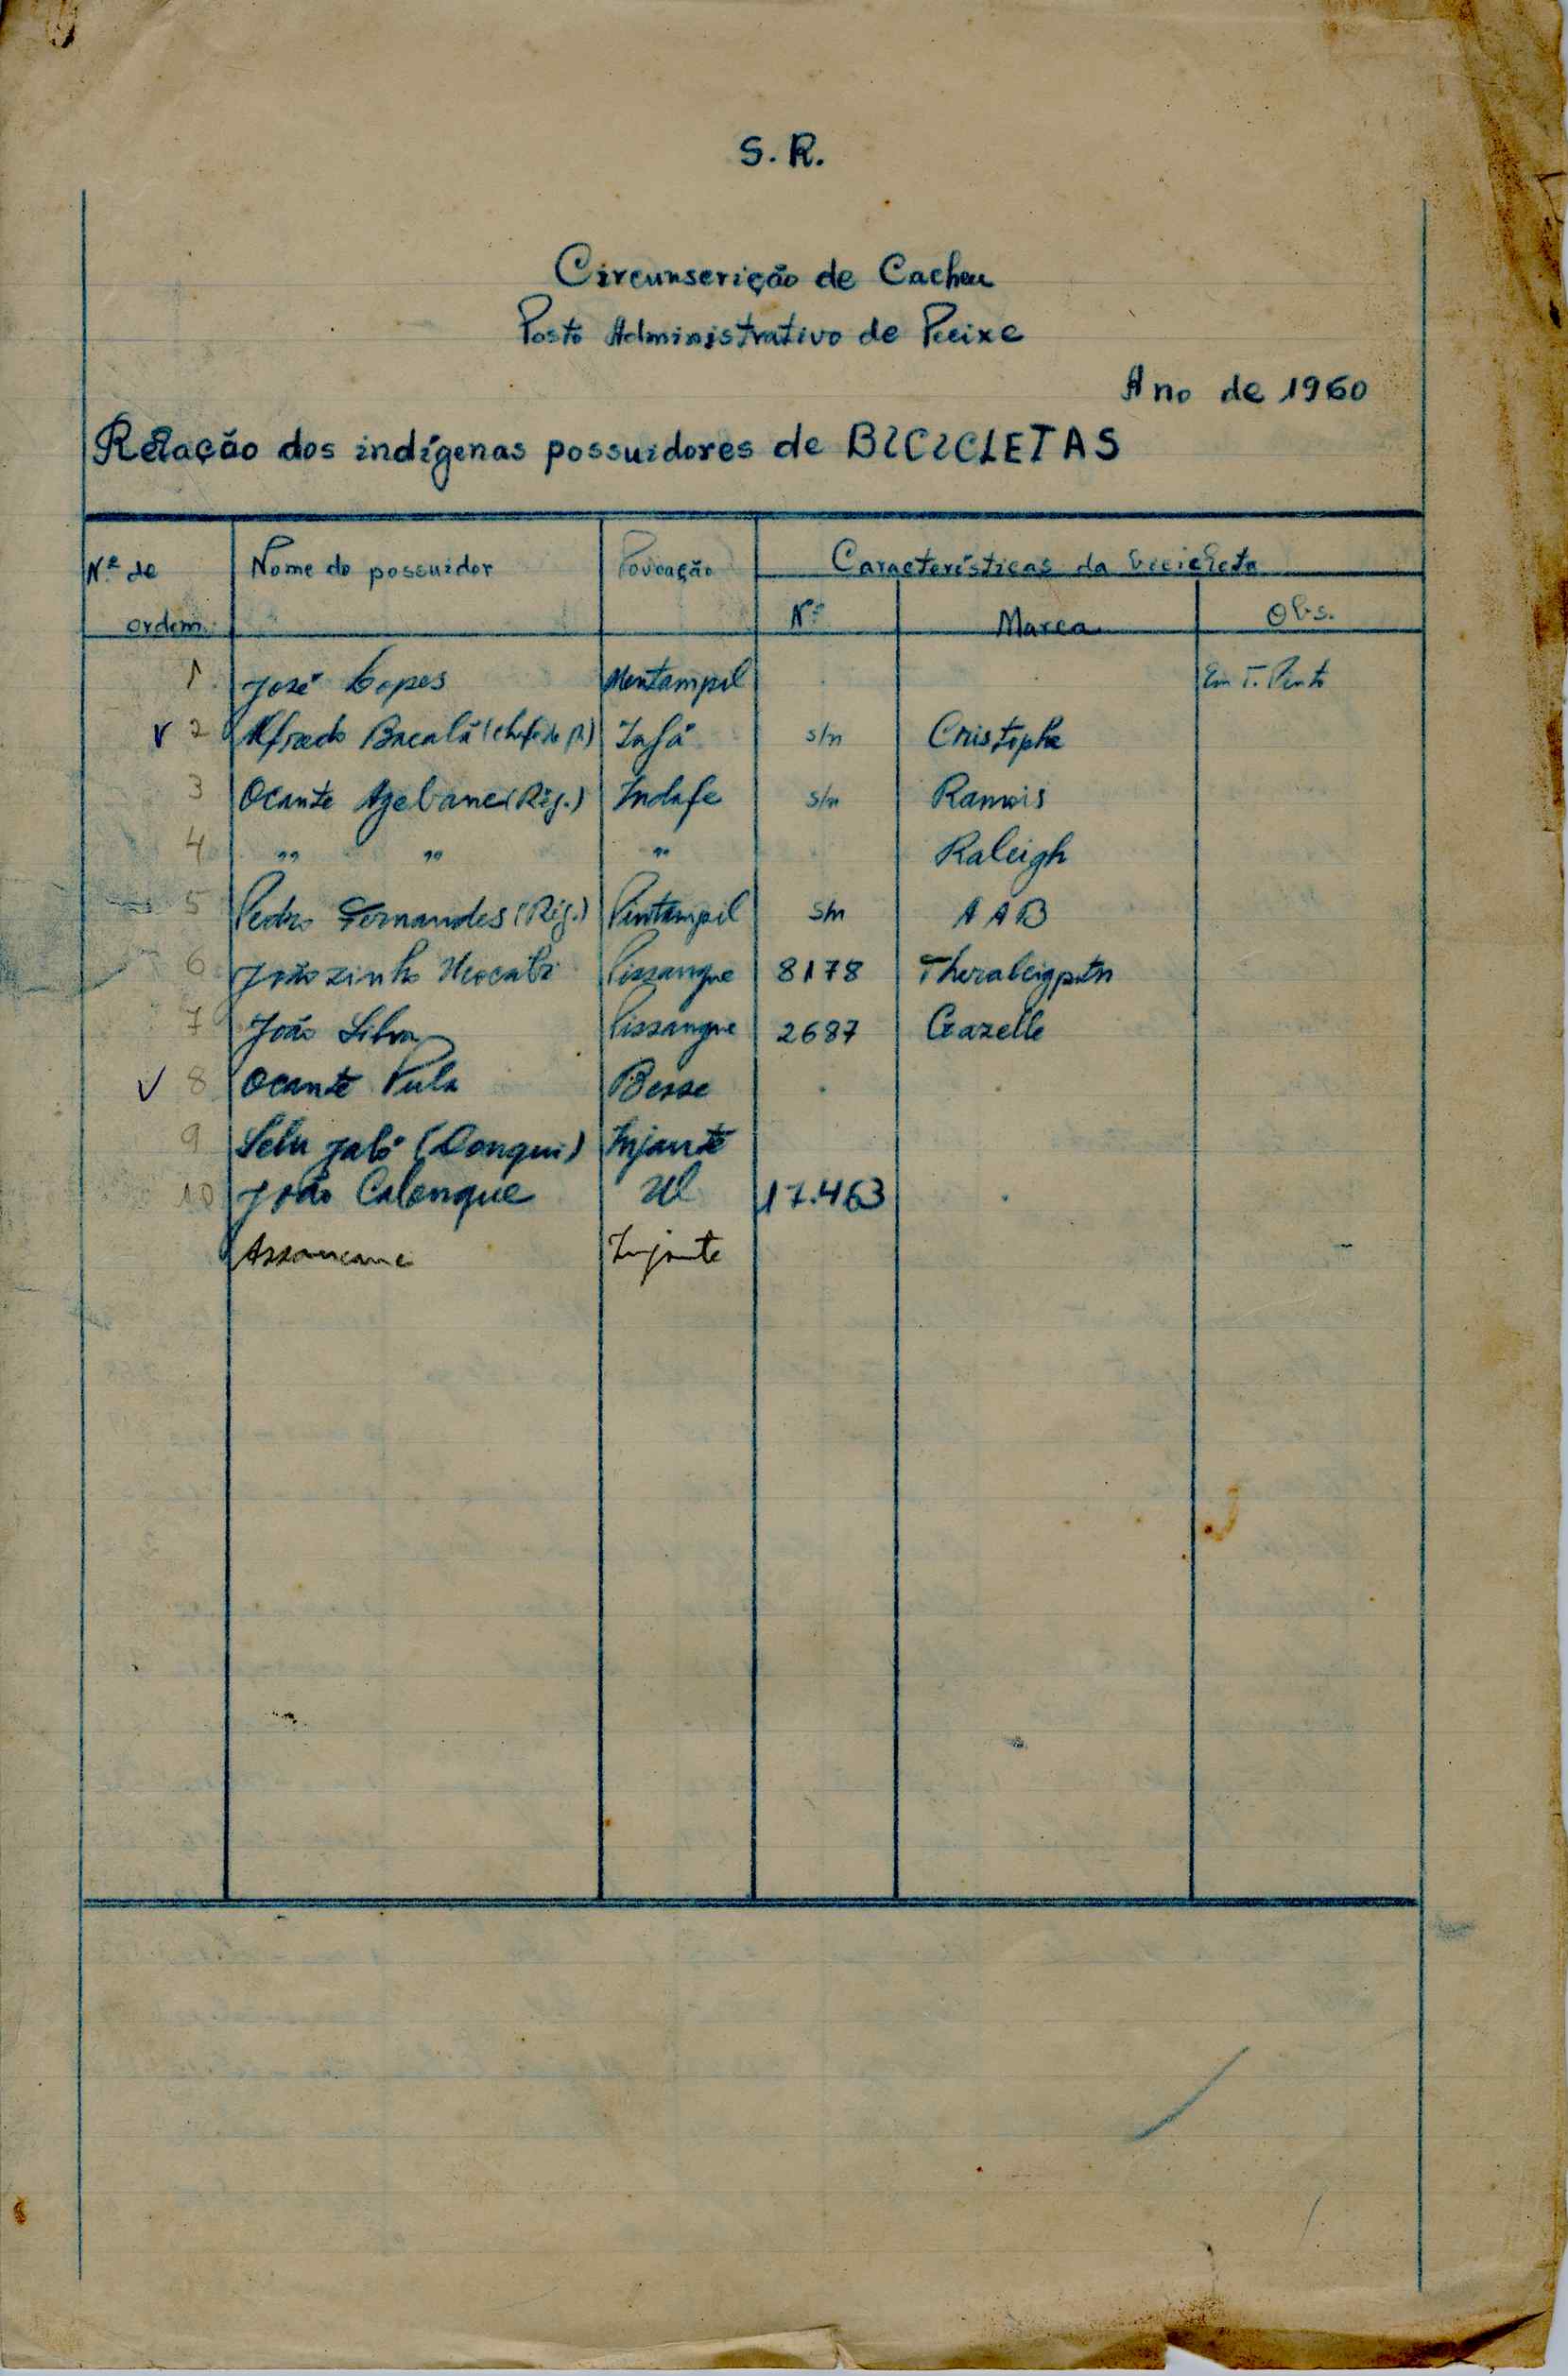 S. R.
Circunscrição de Cacheu
Posto Administrativo de Pecixe
Ano de 1960
Relação dos indígenas possuidores de BICICLETAS
N.º de ordem Nome do possuidor Povoação Características da bicicleta
N.º Marca Obs.
1 José Lopes Mentampil Em T. Pinto
√ 2 Alfredo Bacalá (chefe de p.) Iafá s/n Cristophe
3 Ocante Agebane (Rég.) Indafe s/n Ramois
4 " " " Raleigh
5 Pedro Fernandes (Rég.) Pintampil s/n A A B
6 Joãozinho Pissangue 8178
7 João Silva Pissangue 2687 Gazelle
√ 8 Ocante Pula Besse
9 Selu Jaló (Donqui) Injante
10 João Calenque Ul 17.463
Injante